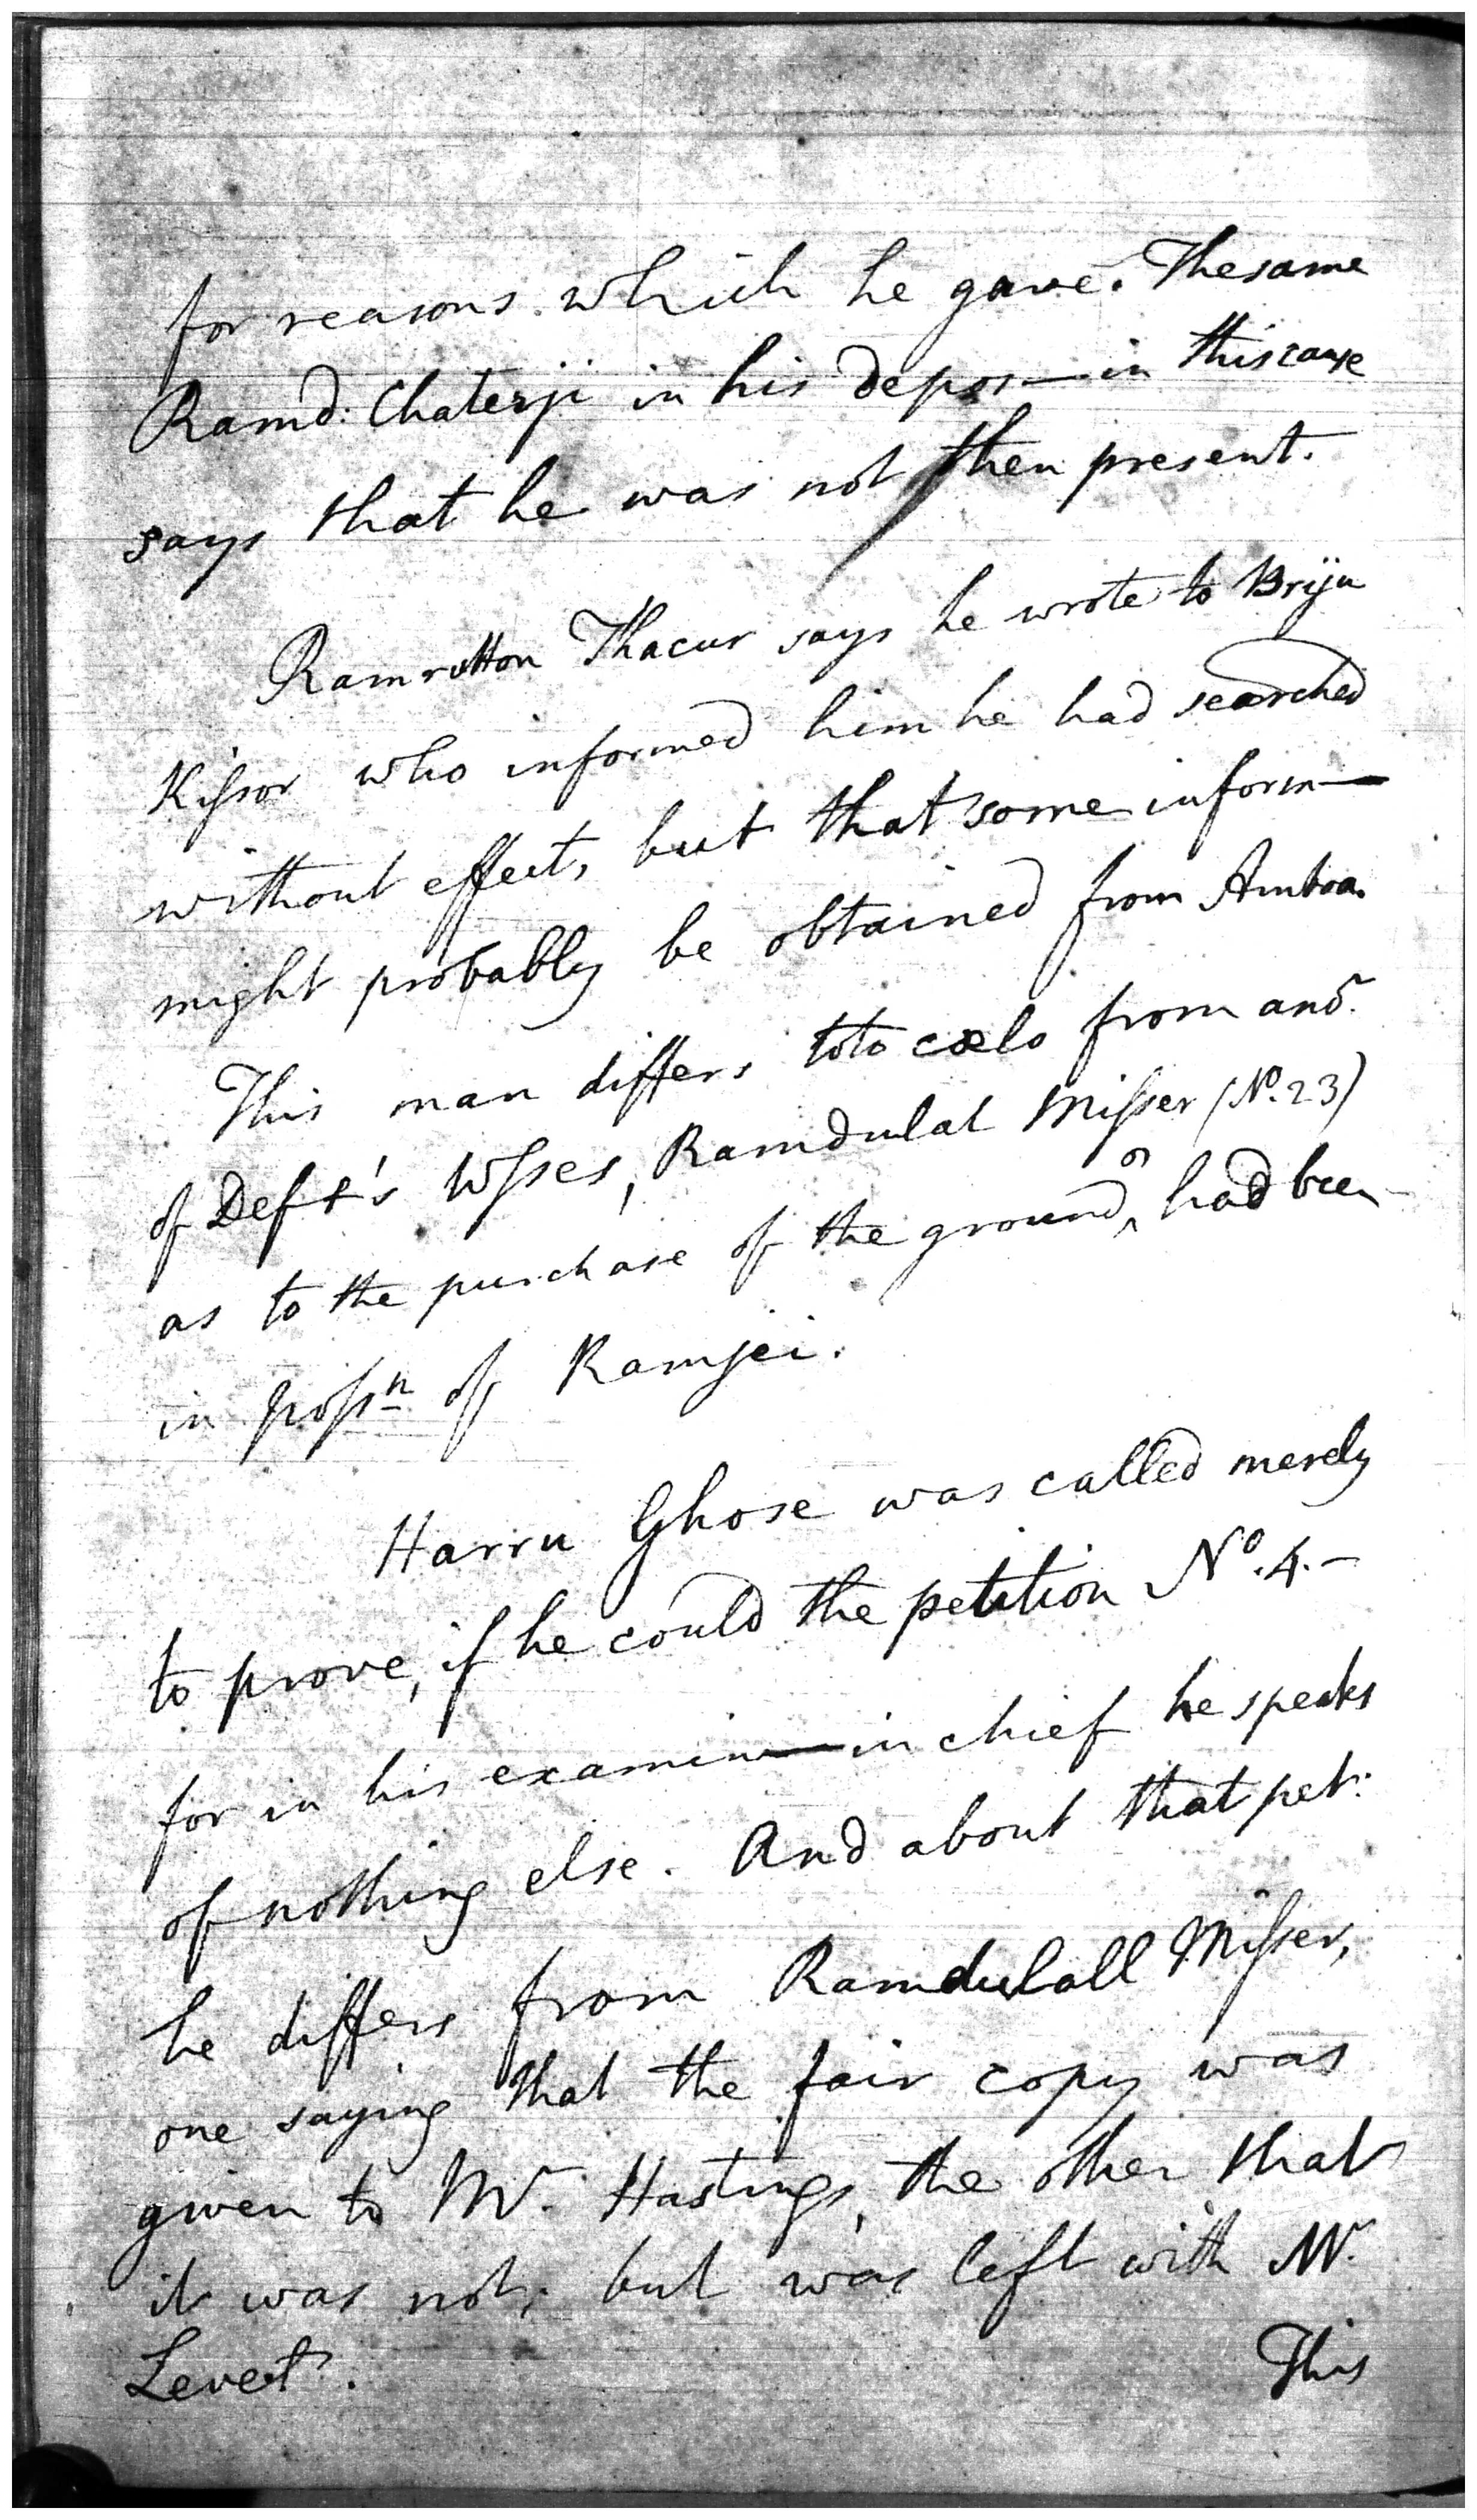 for reasons which he gave. The same
Ramd: Chaterji in his depos— in this cause
says that he was not then present.
Ramrotton Thacur says he wrote to Briju
Kissor who informed him he had searched
without effect, but that some inform—
might probably be obtained from Amboa.
This man differs toto cælo from anor.
of Deft's Wsses, Ramdulal Misser (No. 23)
as to the purchase of the ground, had been
in possn of Ramjei.
Harru Ghose was called merely
to prove, if he could the petition No. 4.—
for in his examin— in chief he speaks
of nothing else. And about that pet:
he differs from Ramdulall Misser,
one saying that the fair copy was
given to Mr. Hastings, the other that
it was not; but was left with Mr.
Levet.
This